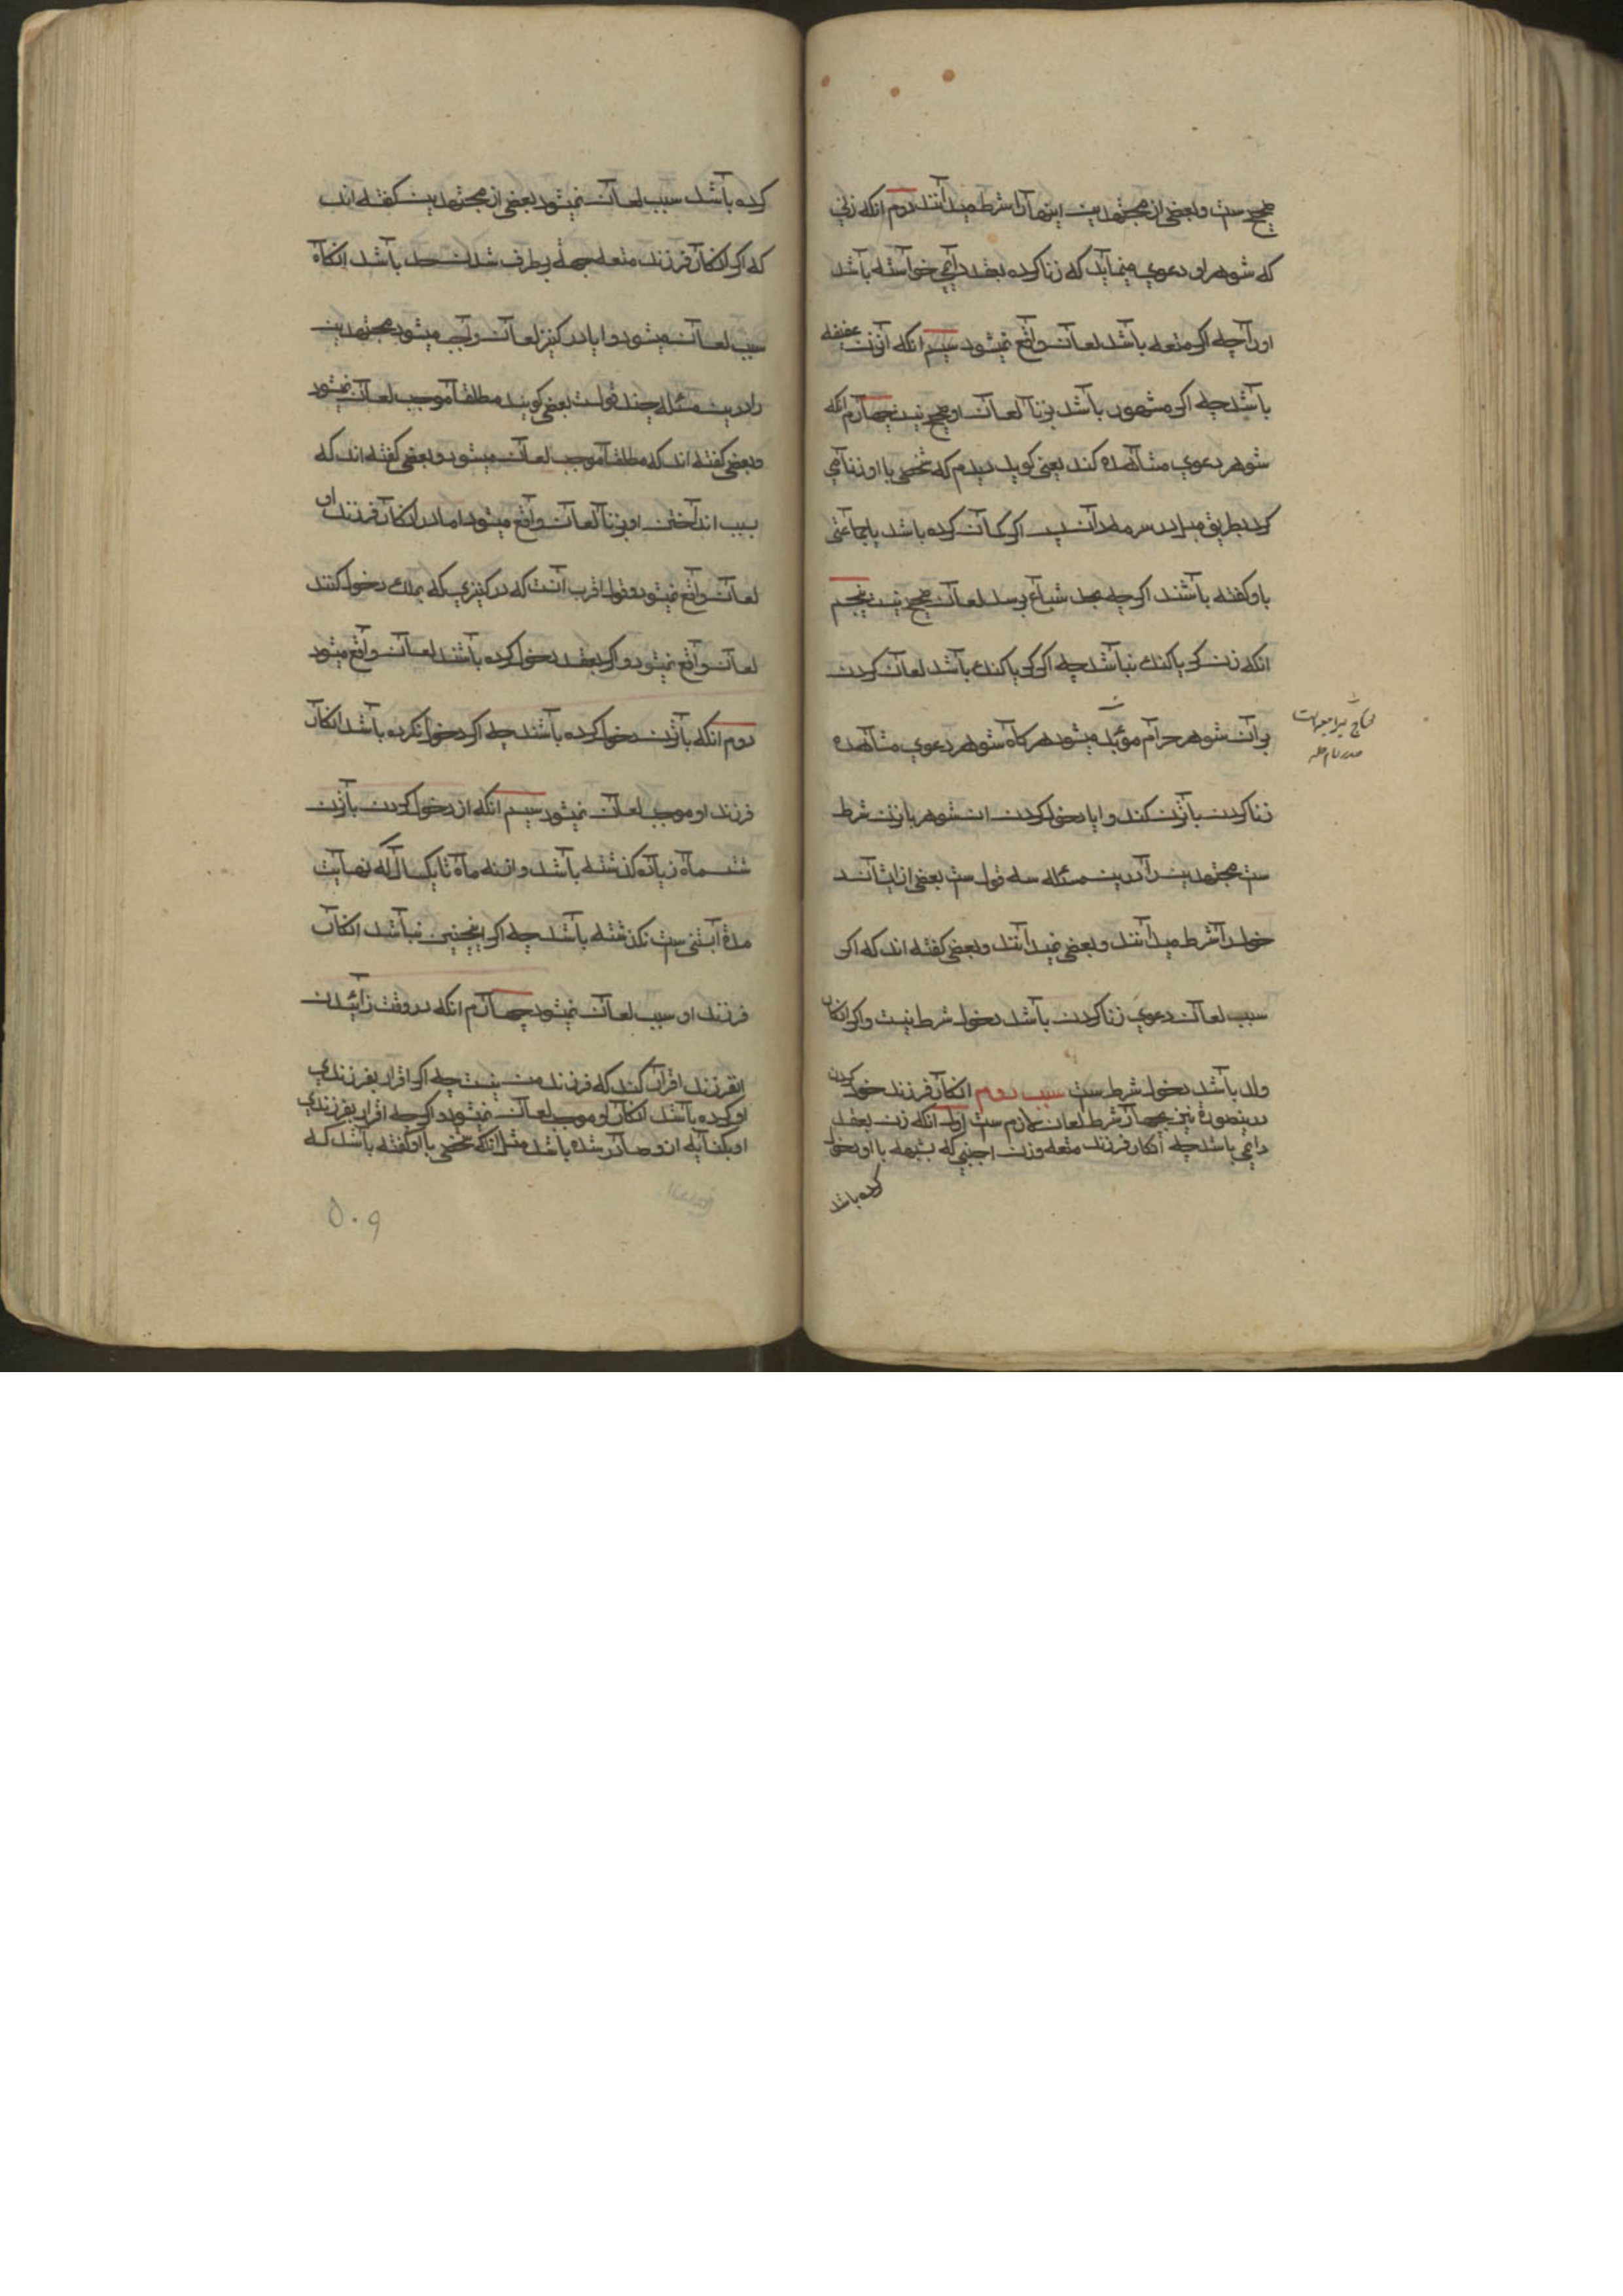 صحیح ست و بعضی از مجتهدین اینها را شرط میدانند دوم انکه زنی
که شوهر او دعوی مینماید که زنا کرده بعقد دایمی خواسته باشد
اورا چه اکر متعه باشد لعان واقع نمیشود سیم انکه آنزن عفیفه
باشد چه اکر مشهور باشد بزنا لعان او صحیح نیست چهارم انکه
شوهر دعوی مشاهده کند یعنی کوید دیدم که شخصی با او زنا می
کرد بطریق میل در سرمه دان پس اکر کمان کرده باشد یا جماعتی
باو کفته باشند اکر چه بحد شیاع برسد لعان صحیح نیست پنجم
انکه زن کر یا کنک نباشد چه اکر کر یا کنک باشد لعان کردن
بر آن شوهر حرام مؤبد میشود هرکاه شوهر دعوی مشاهده
زنا کردن بازن کند و ایا دخول کردن ان شوهر بازن شرط
ست مجتهدین را درین مسئله سه قول ست بعضی از ایشان
دخول را شرط میدانند و بعضی نمیدانند و بعضی کفته اند که اکر
سبب لعان دعوی زنا کردن باشد دخول شرط نیست و اکر انکار
ولد باشد دخول شرط ست سبب دوم انکار فرزند خود کردن
درینصورة نیز چهار شرط لعان لازم ست اول انکه زن بعقد
دایمی باشد چه انکار فرزند متعه و زن اجنبی که بشبهه با او دخول
کرده باشد
کرده باشد سبب لعان نمیشود بعضی از مجتهدین کفته اند
که اکر انکار فرزند متعه بجهة برطرف شدن حد باشد انکاه
سبب لعان میشود و ایا در کنیز لعان واجب میشود مجتهدین
را درین مسئله چند قولست بعضی کویند مطلقا موجب لعان نمیشود
و بعضی کفته اند که مطلقا موجب لعان میشود و بعضی کفته اند که
بسبب انداختن او بزنا لعان واقع میشود اما در انکار فرزند او
لعان واقع نمیشود و قول اقرب آنست که در کنیزی که بملک دخول کنند
لعان واقع نمیشود و اکر بعقد دخول کرده باشند لعان واقع میشود
دوم انکه بازن دخول کرده باشند چه اکر دخول نکرده باشد انکار
فرزند او موجب لعان نمیشود سیم انکه از دخول کردن بازن
شش ماه زیاده کذشته باشد و از نه ماه تا یکسال که نهایت
مدة آبستنی ست نکذشته باشد چه اکر اینچنین نباشد انکار
فرزند او سبب لعان نمیشود چهارم انکه در وقت زائیدن
انفرزند اقرار کند که فرزند من نیست چه اکر اقرار بفرزندی
او کرده باشد انکار او موجب لعان نمیشود و اکر چه اقرار بفرزندی
او بکنایه از و صادر شده باشد مثل انکه شخصی با او کفته باشد که
۵۰۹